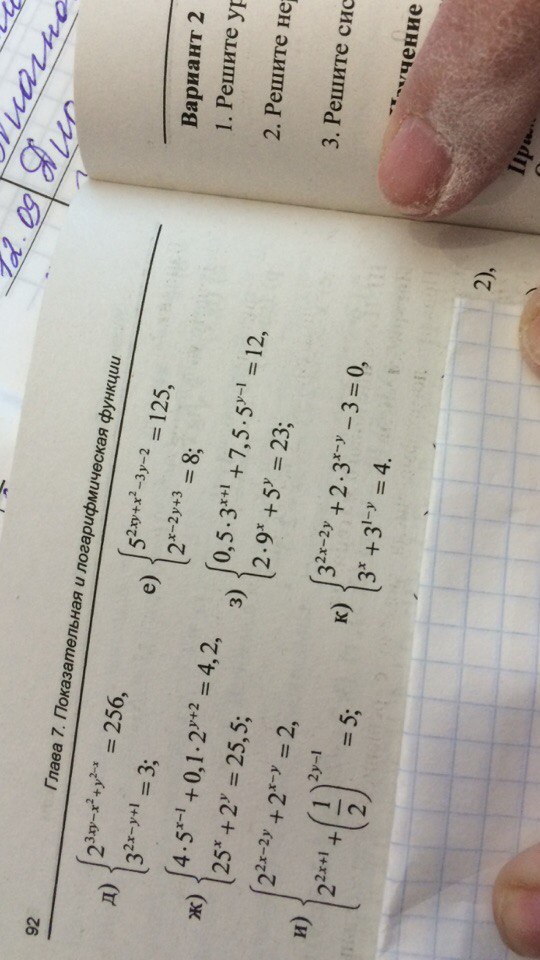 92
Глава 7. Показательная и логарифмическая функции
д) {2^{3xy−x²+y²⁻ˣ} = 256,
3^{2x−y+1} = 3;
е) {5^{2xy+x²−3y−2} = 125,
2^{x−2y+3} = 8;
ж) {4·5^{x−1} + 0,1·2^{y+2} = 4,2,
25^x + 2^y = 25,5;
з) {0,5·3^{x+1} + 7,5·5^{y−1} = 12,
2·9^x + 5^y = 23;
и) {2^{2x−2y} + 2^{x−y} = 2,
2^{2x+1} + (1/2)^{2y−1} = 5;
к) {3^{2x−2y} + 2·3^{x−y} − 3 = 0,
3^x + 3^{1−y} = 4.
2),
Вариант 2
1. Решите ур
2. Решите нер
3. Решите сис
12.09